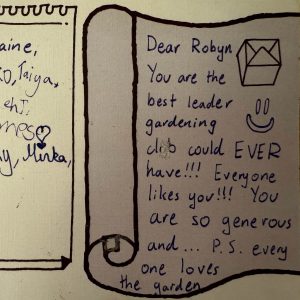 aine,
Taiya,
Minka,
Dear Robyn
You are the
best leader
gardening
club could EVER
have!!! Everyone
likes you!!! You
are so generous
and... P.S. every
one loves
the garden